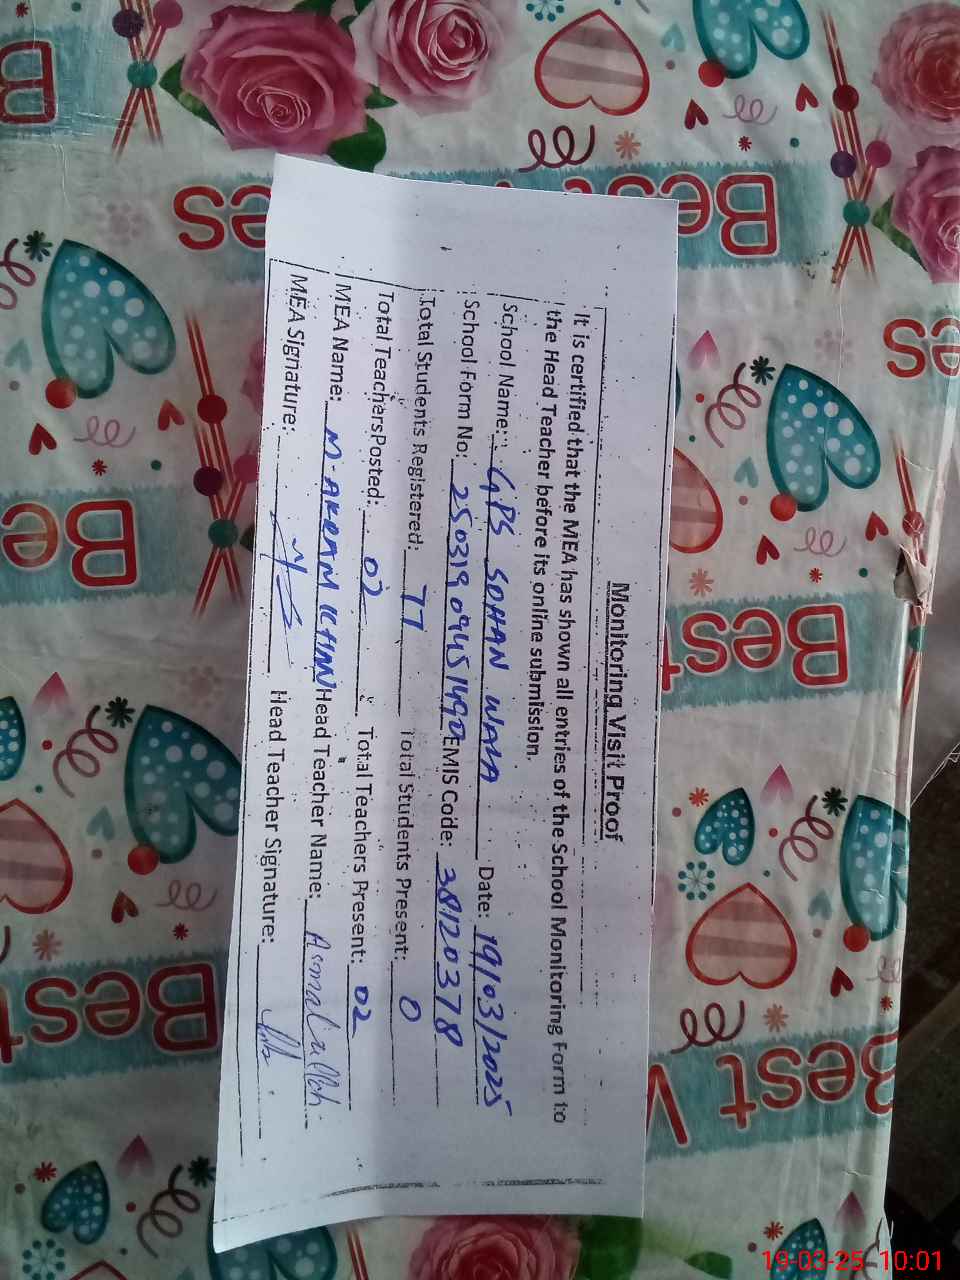 Monitoring Visit Proof
It is certified that the MEA has shown all entries of the School Monitoring Form to
the Head Teacher before its online submission.
School Name: GPS SOHAN WALA Date: 19/03/2025
School Form No: 25031909451490 EMIS Code: 38120378
Total Students Registered: 77 Total Students Present: 0
Total Teachers Posted: 02 Total Teachers Present: 02
MEA Name: M. AKRAM KHAN Head Teacher Name:
MEA Signature: Head Teacher Signature:
Best
Best
Best
Best
19-03-25 10:01